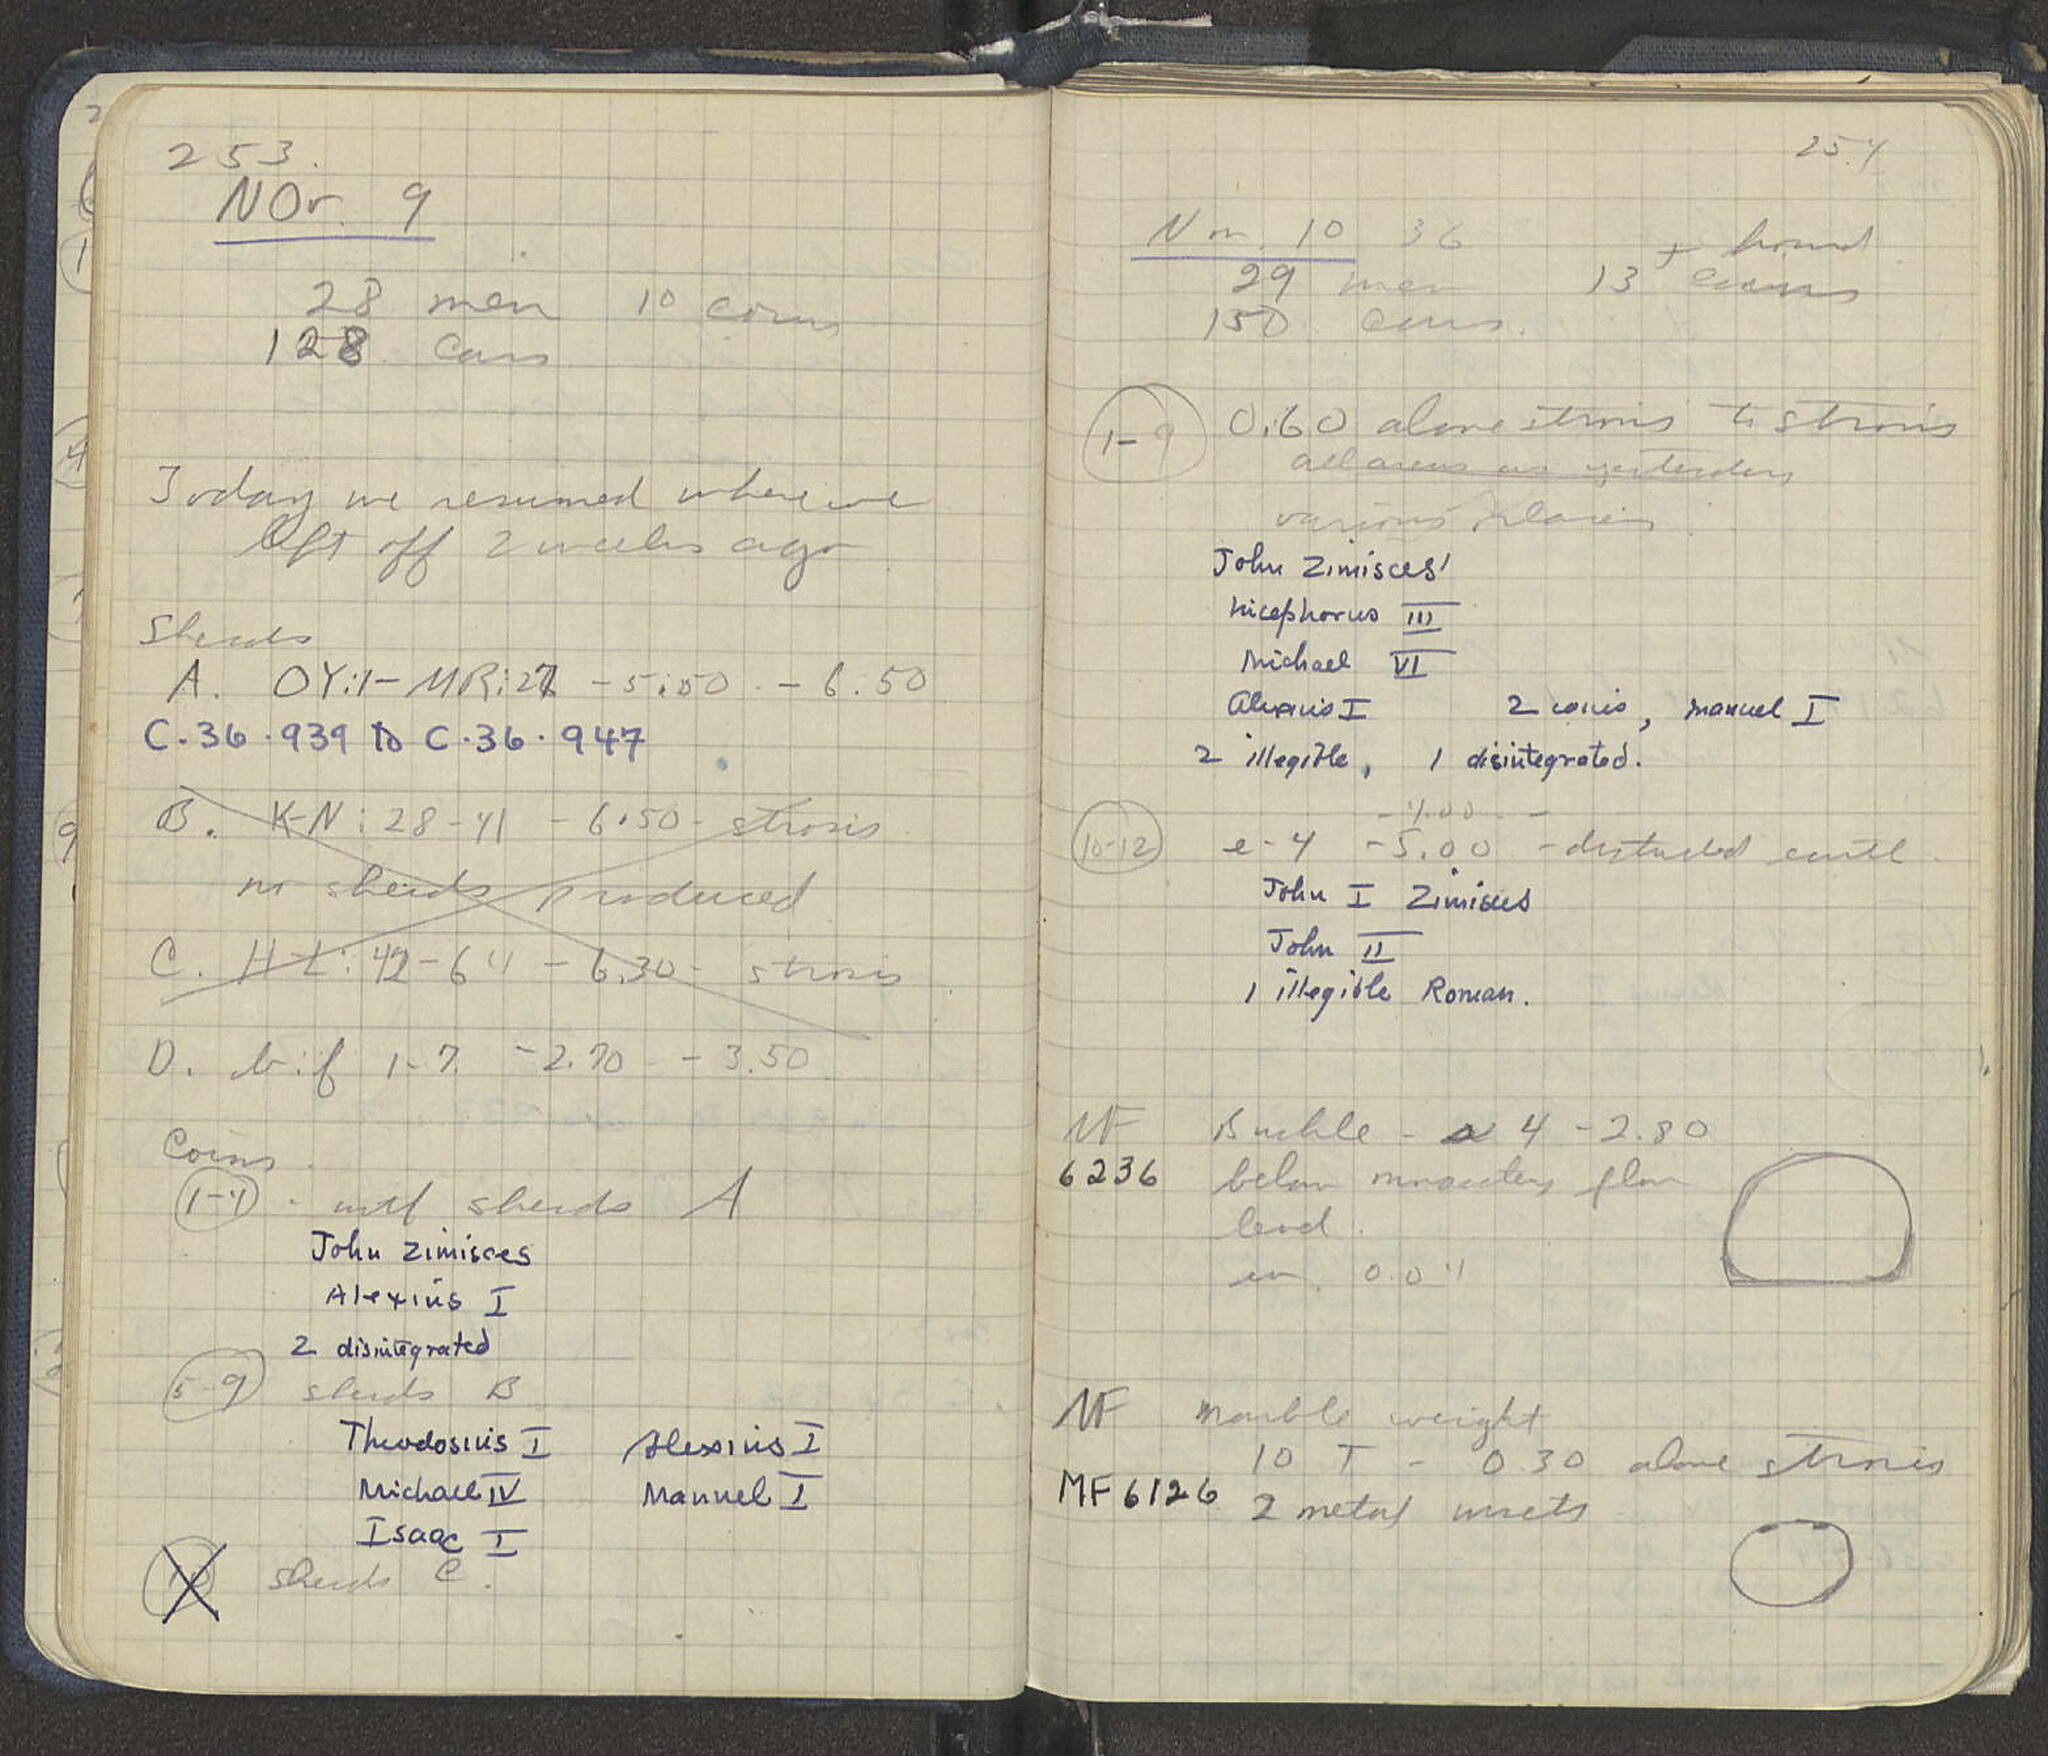 253.
Nov. 9
28 men 10 coins
128 cars
Today we resumed where we
left off 2 weeks ago
Sherds
A. OY:1-MR:27 -5.50 - 6.50
C.36.939 to C.36.947
B. K-N: 28-41 - 6.50 - strosis
no sherds produced
C. H-L: 42-64 - 6.30 - strosis
D. b:f 1-7. -2.70 - -3.50
Coins
1-4 - with sherds A
John Zimisces
Alexius I
2 disintegrated
5-9 sherds B
Theodosius I Alexius I
Michael IV Manuel I
Isaac I
sherds C.
254
Nov. 10 36 + hoard
29 men 13 coins
150 cars.
1-9 0.60 above strosis to strosis
all areas as yesterday
various places
John Zimisces
Nicephorus III
Michael VI
Alexius I 2 coins, Manuel I
2 illegible, 1 disintegrated.
-4.00 -
10-12 e-4 -5.00 - disturbed earth
John I Zimisces
John II
1 illegible Roman.
MF Buckle - a 4 - 2.80
6236 below monastery floor
lead.
0.04
MF Marble weight
10 T - 0.30 above strosis
MF 6126 2 metal insets